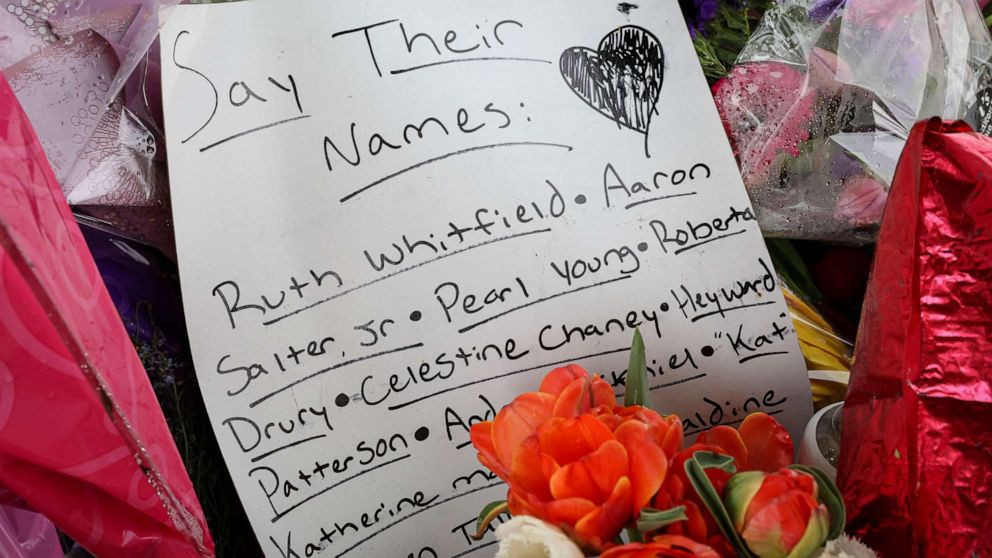 Say Their
Names:
Ruth Whitfield • Aaron
Salter, Jr • Pearl Young • Roberta
Drury • Celestine Chaney • Heyward
Patterson • "Kat"
Katherine